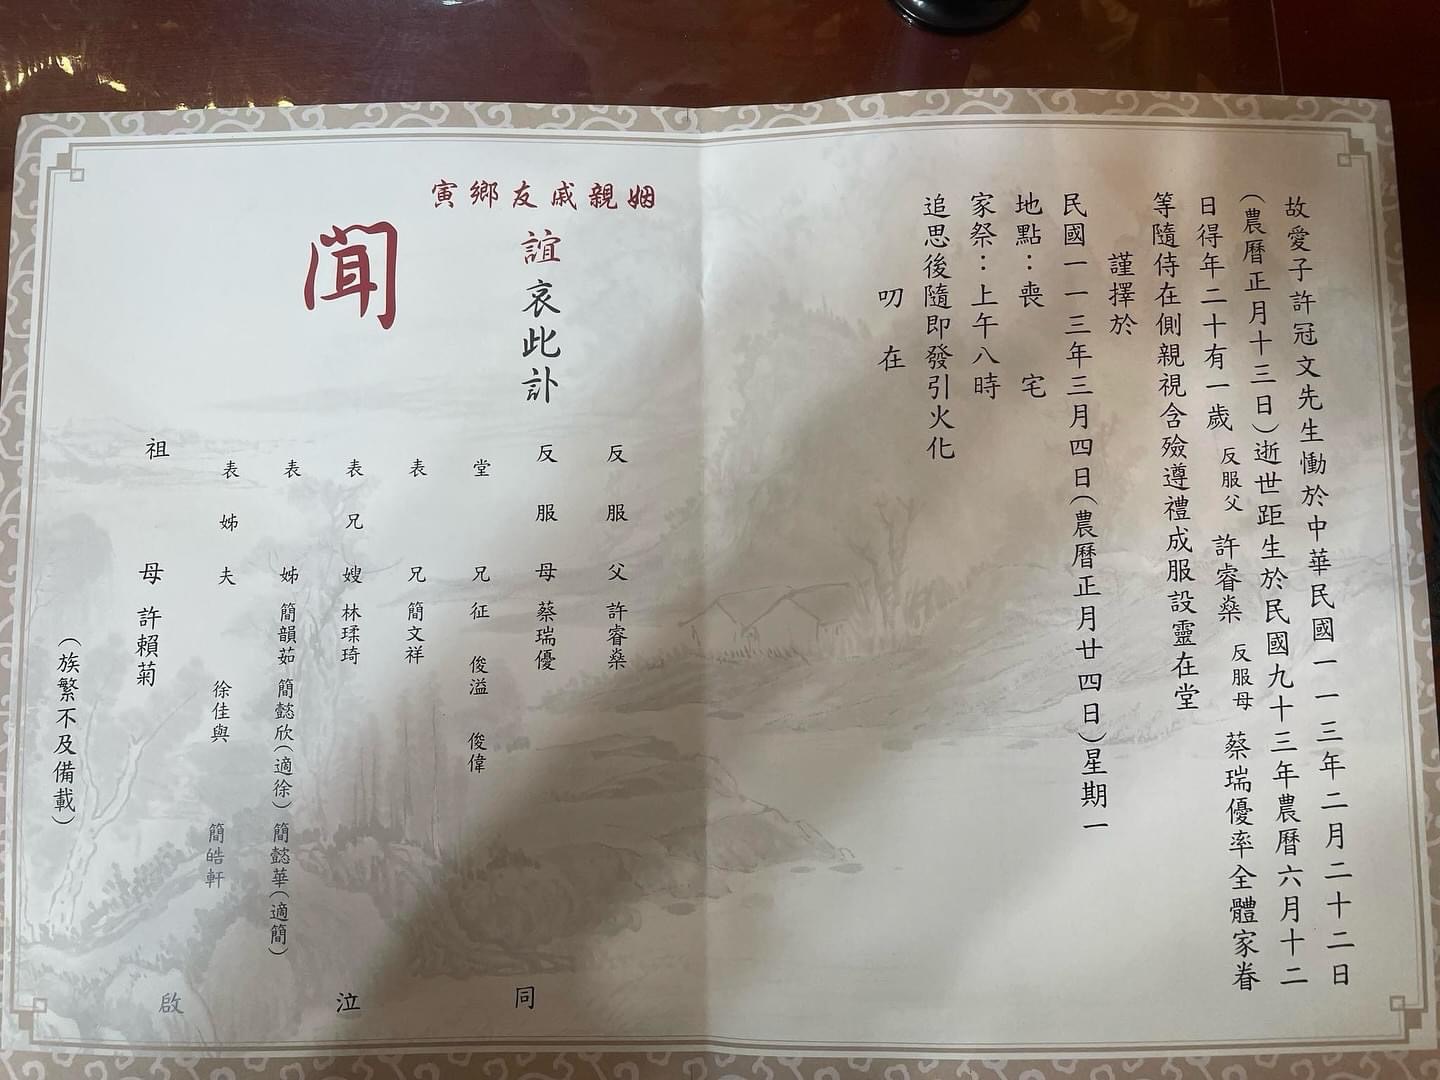 故愛子許冠文先生慟於中華民國一一三年二月二十二日
(農曆正月十三日)逝世距生於民國九十三年農曆六月十二
日得年二十有一歲 反服父 許睿燊 反服母 蔡瑞優率全體家眷
等隨侍在側親視含殮遵禮成服設靈在堂
謹擇於
民國一一三年三月四日(農曆正月廿四日)星期一
地點：喪 宅
家祭：上午八時
追思後隨即發引火化
叨 在
姻親戚友鄉寅
誼哀此訃
聞
反服父 許睿燊
反服母 蔡瑞優
堂兄 征 俊溢 俊偉
表兄 簡文祥
表兄嫂 林琦
表姊 簡韻茹 簡懿欣(適徐) 簡懿華(適簡)
表姊夫 徐佳與 簡皓軒
祖母 許賴菊
(族繁不及備載)
同 泣 啟